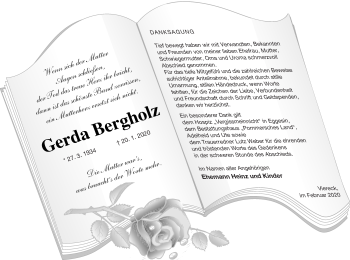 Wenn sich der Mutter
Augen schließen,
der Tod das treue Herz ihr bricht,
dann ist das schönste Band zerrissen,
ein Mutterherz ersetzt sich nicht.
Gerda Bergholz
* 27. 3. 1934
† 20. 1. 2020
Die Mutter war's,
was braucht's der Worte mehr.
DANKSAGUNG
Tief bewegt haben wir mit Verwandten, Bekannten
und Freunden von meiner lieben Ehefrau, Mutter,
Schwiegermutter, Oma und Uroma schmerzvoll
Abschied genommen.
Für das tiefe Mitgefühl und die zahlreichen Beweise
aufrichtiger Anteilnahme, bekundet durch stille
Umarmung, stillen Händedruck, wenn Worte
fehlten, für die Zeichen der Liebe, Verbundenheit
und Freundschaft durch Schrift und Geldspenden,
danken wir herzlichst.
Ein besonderer Dank gilt
dem Hospiz „Vergissmeinnicht" in Eggesin,
dem Bestattungshaus „Pommersches Land",
Adelheid und Ulla sowie
dem Trauerredner Lutz Weber für die ehrenden
und tröstenden Worte des Gedenkens
in der schweren Stunde des Abschieds.
Im Namen aller Angehörigen
Ehemann Heinz und Kinder
Viereck,
im Februar 2020